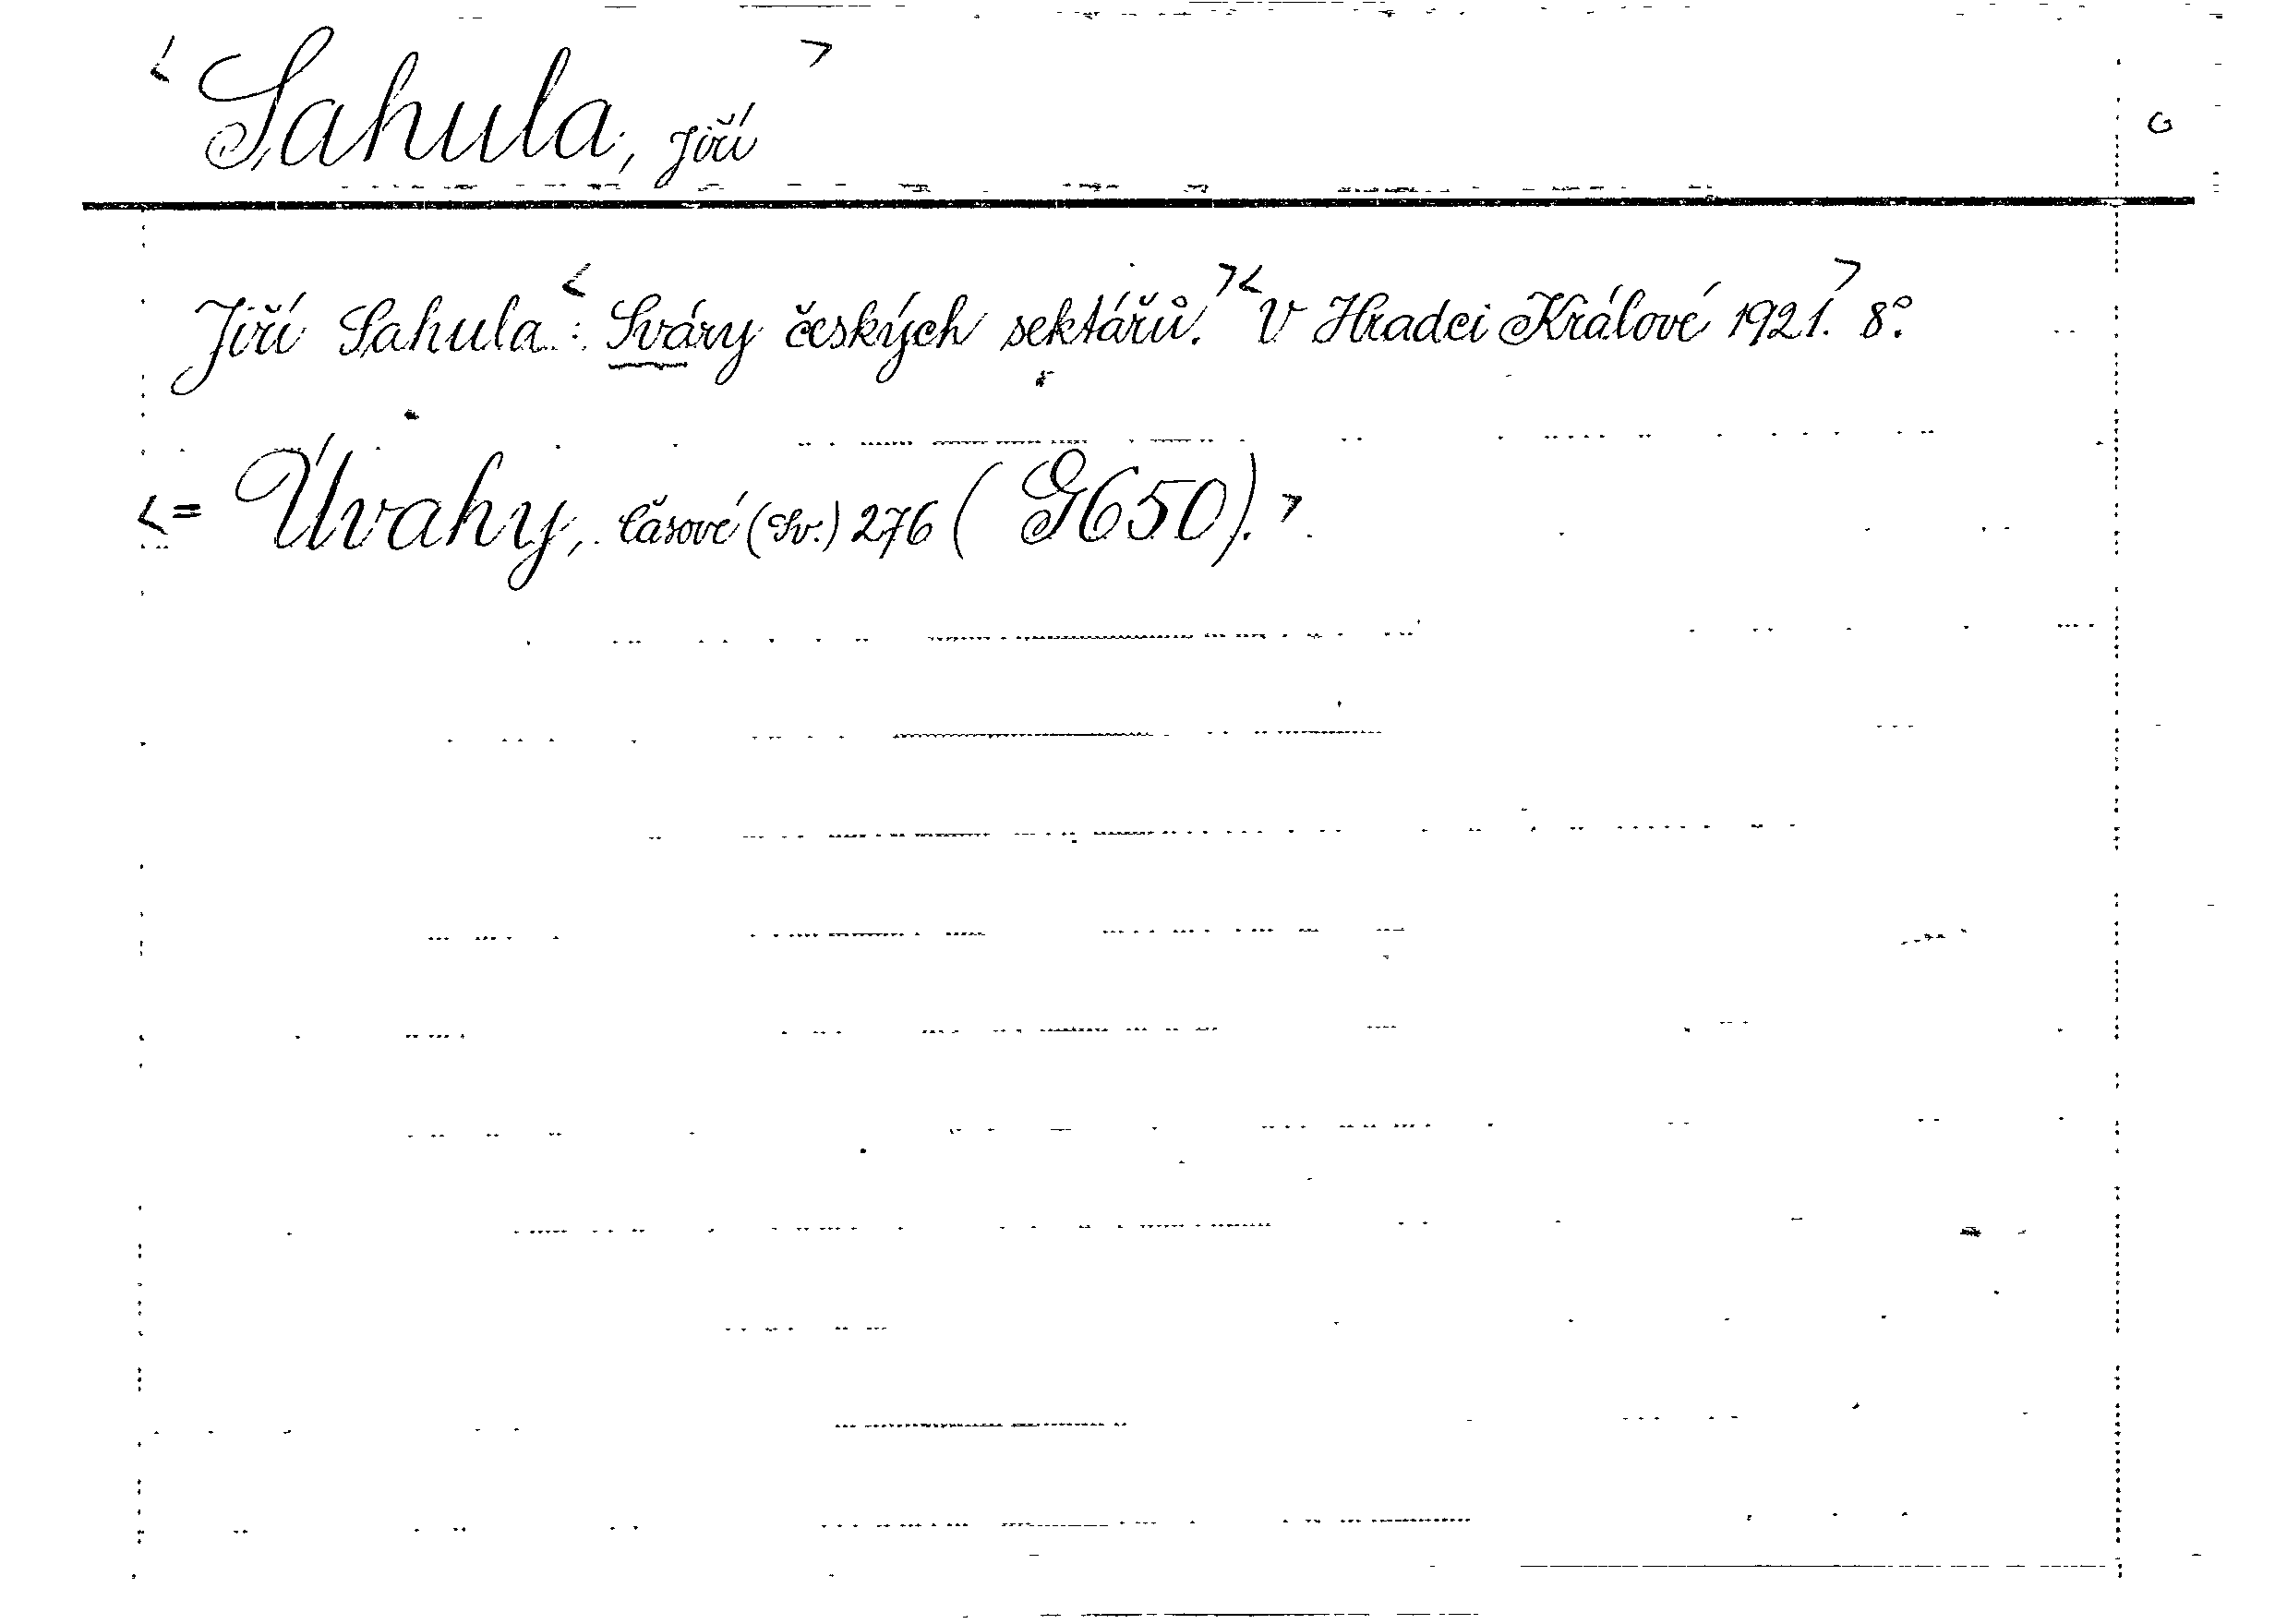 <Sahula, Jiří> G
Jiří Sahula: <Sváry českých sektářů.> <V Hradci Králové 1921.> 8°.
<= Úvahy, časové (Sv.) 276 (G650).>